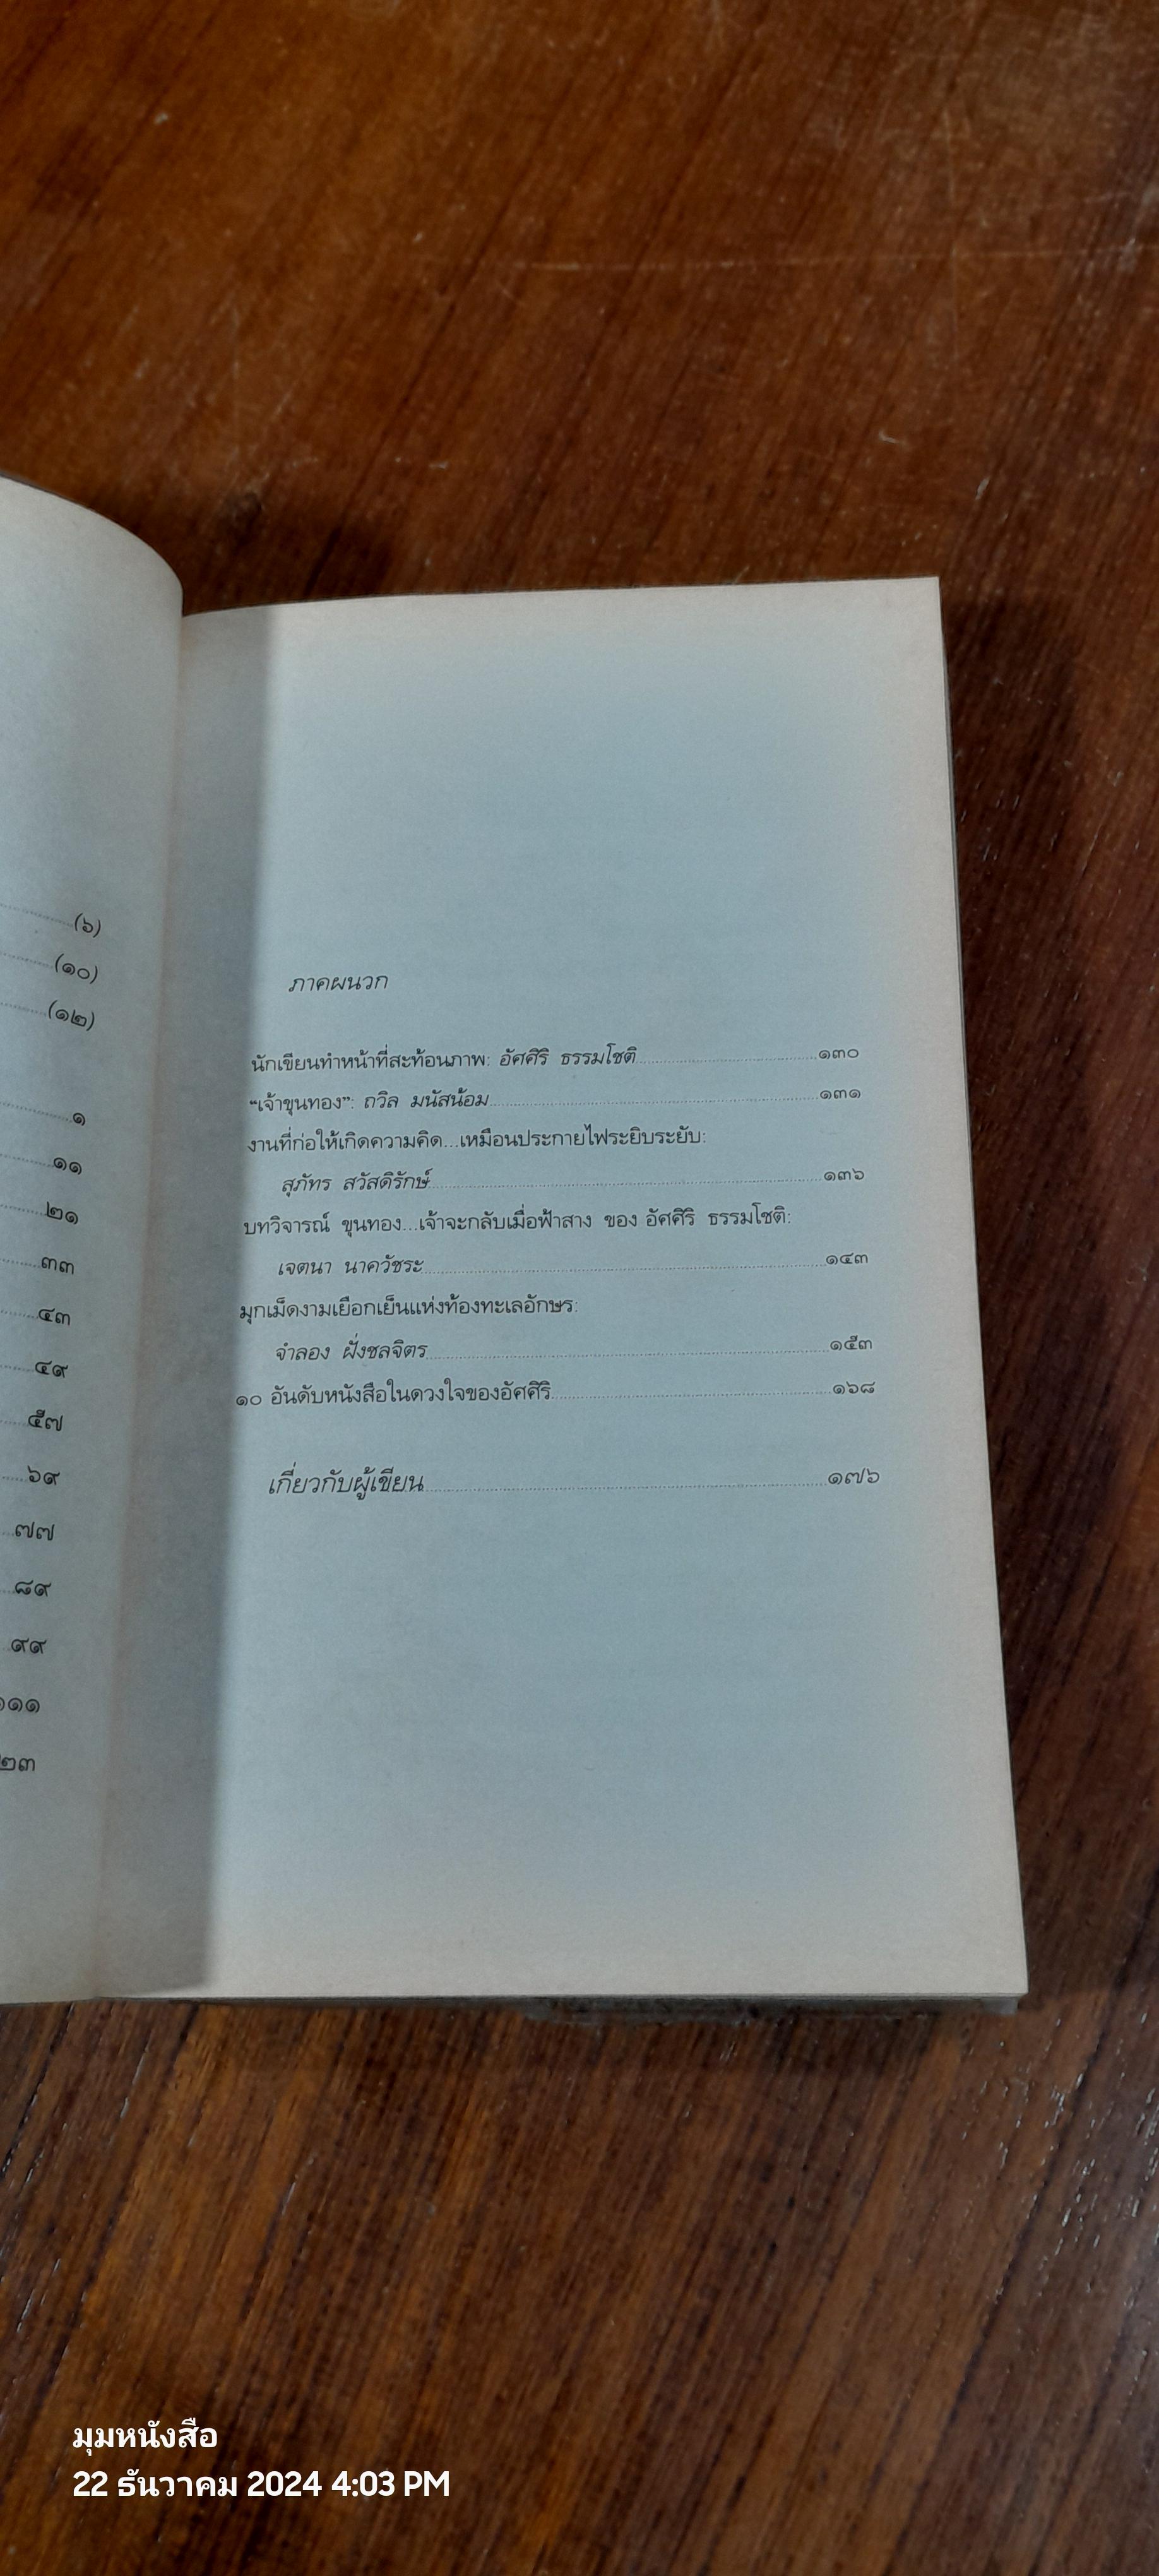 (๖)
(๑๐)
(๑๒)
๑
๑๑
๒๑
๓๓
๔๓
๔๙
๕๗
๖๙
๗๗
๘๙
๙๙
๑๑๑
๒๓
ภาคผนวก
นักเขียนทำหน้าที่สะท้อนภาพ: อัศศิริ ธรรมโชติ ๑๓๐
“เจ้าขุนทอง”: ถวิล มนัสน้อม ๑๓๑
งานที่ก่อให้เกิดความคิด...เหมือนประกายไฟระยิบระยับ:
สุภัทร สวัสดิรักษ์ ๑๓๖
บทวิจารณ์ ขุนทอง...เจ้าจะกลับเมื่อฟ้าสาง ของ อัศศิริ ธรรมโชติ:
เจตนา นาควัชระ ๑๔๓
มุกเม็ดงามเยือกเย็นแห่งท้องทะเลอักษร:
จำลอง ฝั่งชลจิตร ๑๕๓
๑๐ อันดับหนังสือในดวงใจของอัศศิริ ๑๖๘
เกี่ยวกับผู้เขียน ๑๗๖
มุมหนังสือ
22 ธันวาคม 2024 4:03 PM